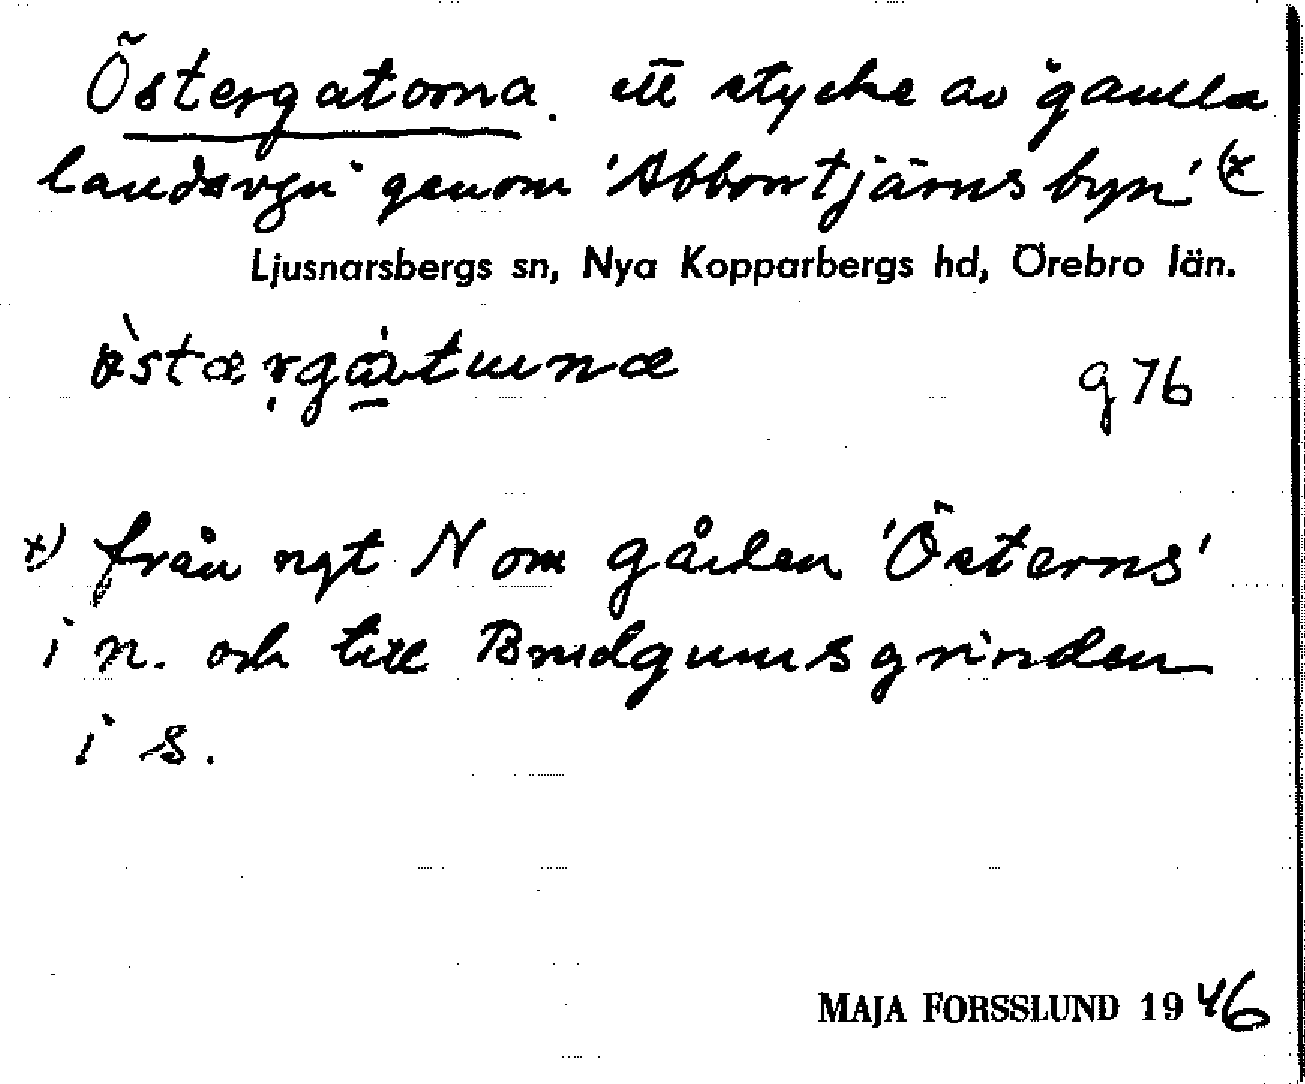 Östergatorna. ett stycke av "gamla
landsvgn" genom 'Abborrtjärnsbyn' (x
Ljusnarsbergs sn, Nya Kopparbergs hd, Örebro län.
g 76
x) från ngt N om gården 'Österns'
i n. och till Brudgumsgrinden
i s.
MAJA FORSSLUND 1946